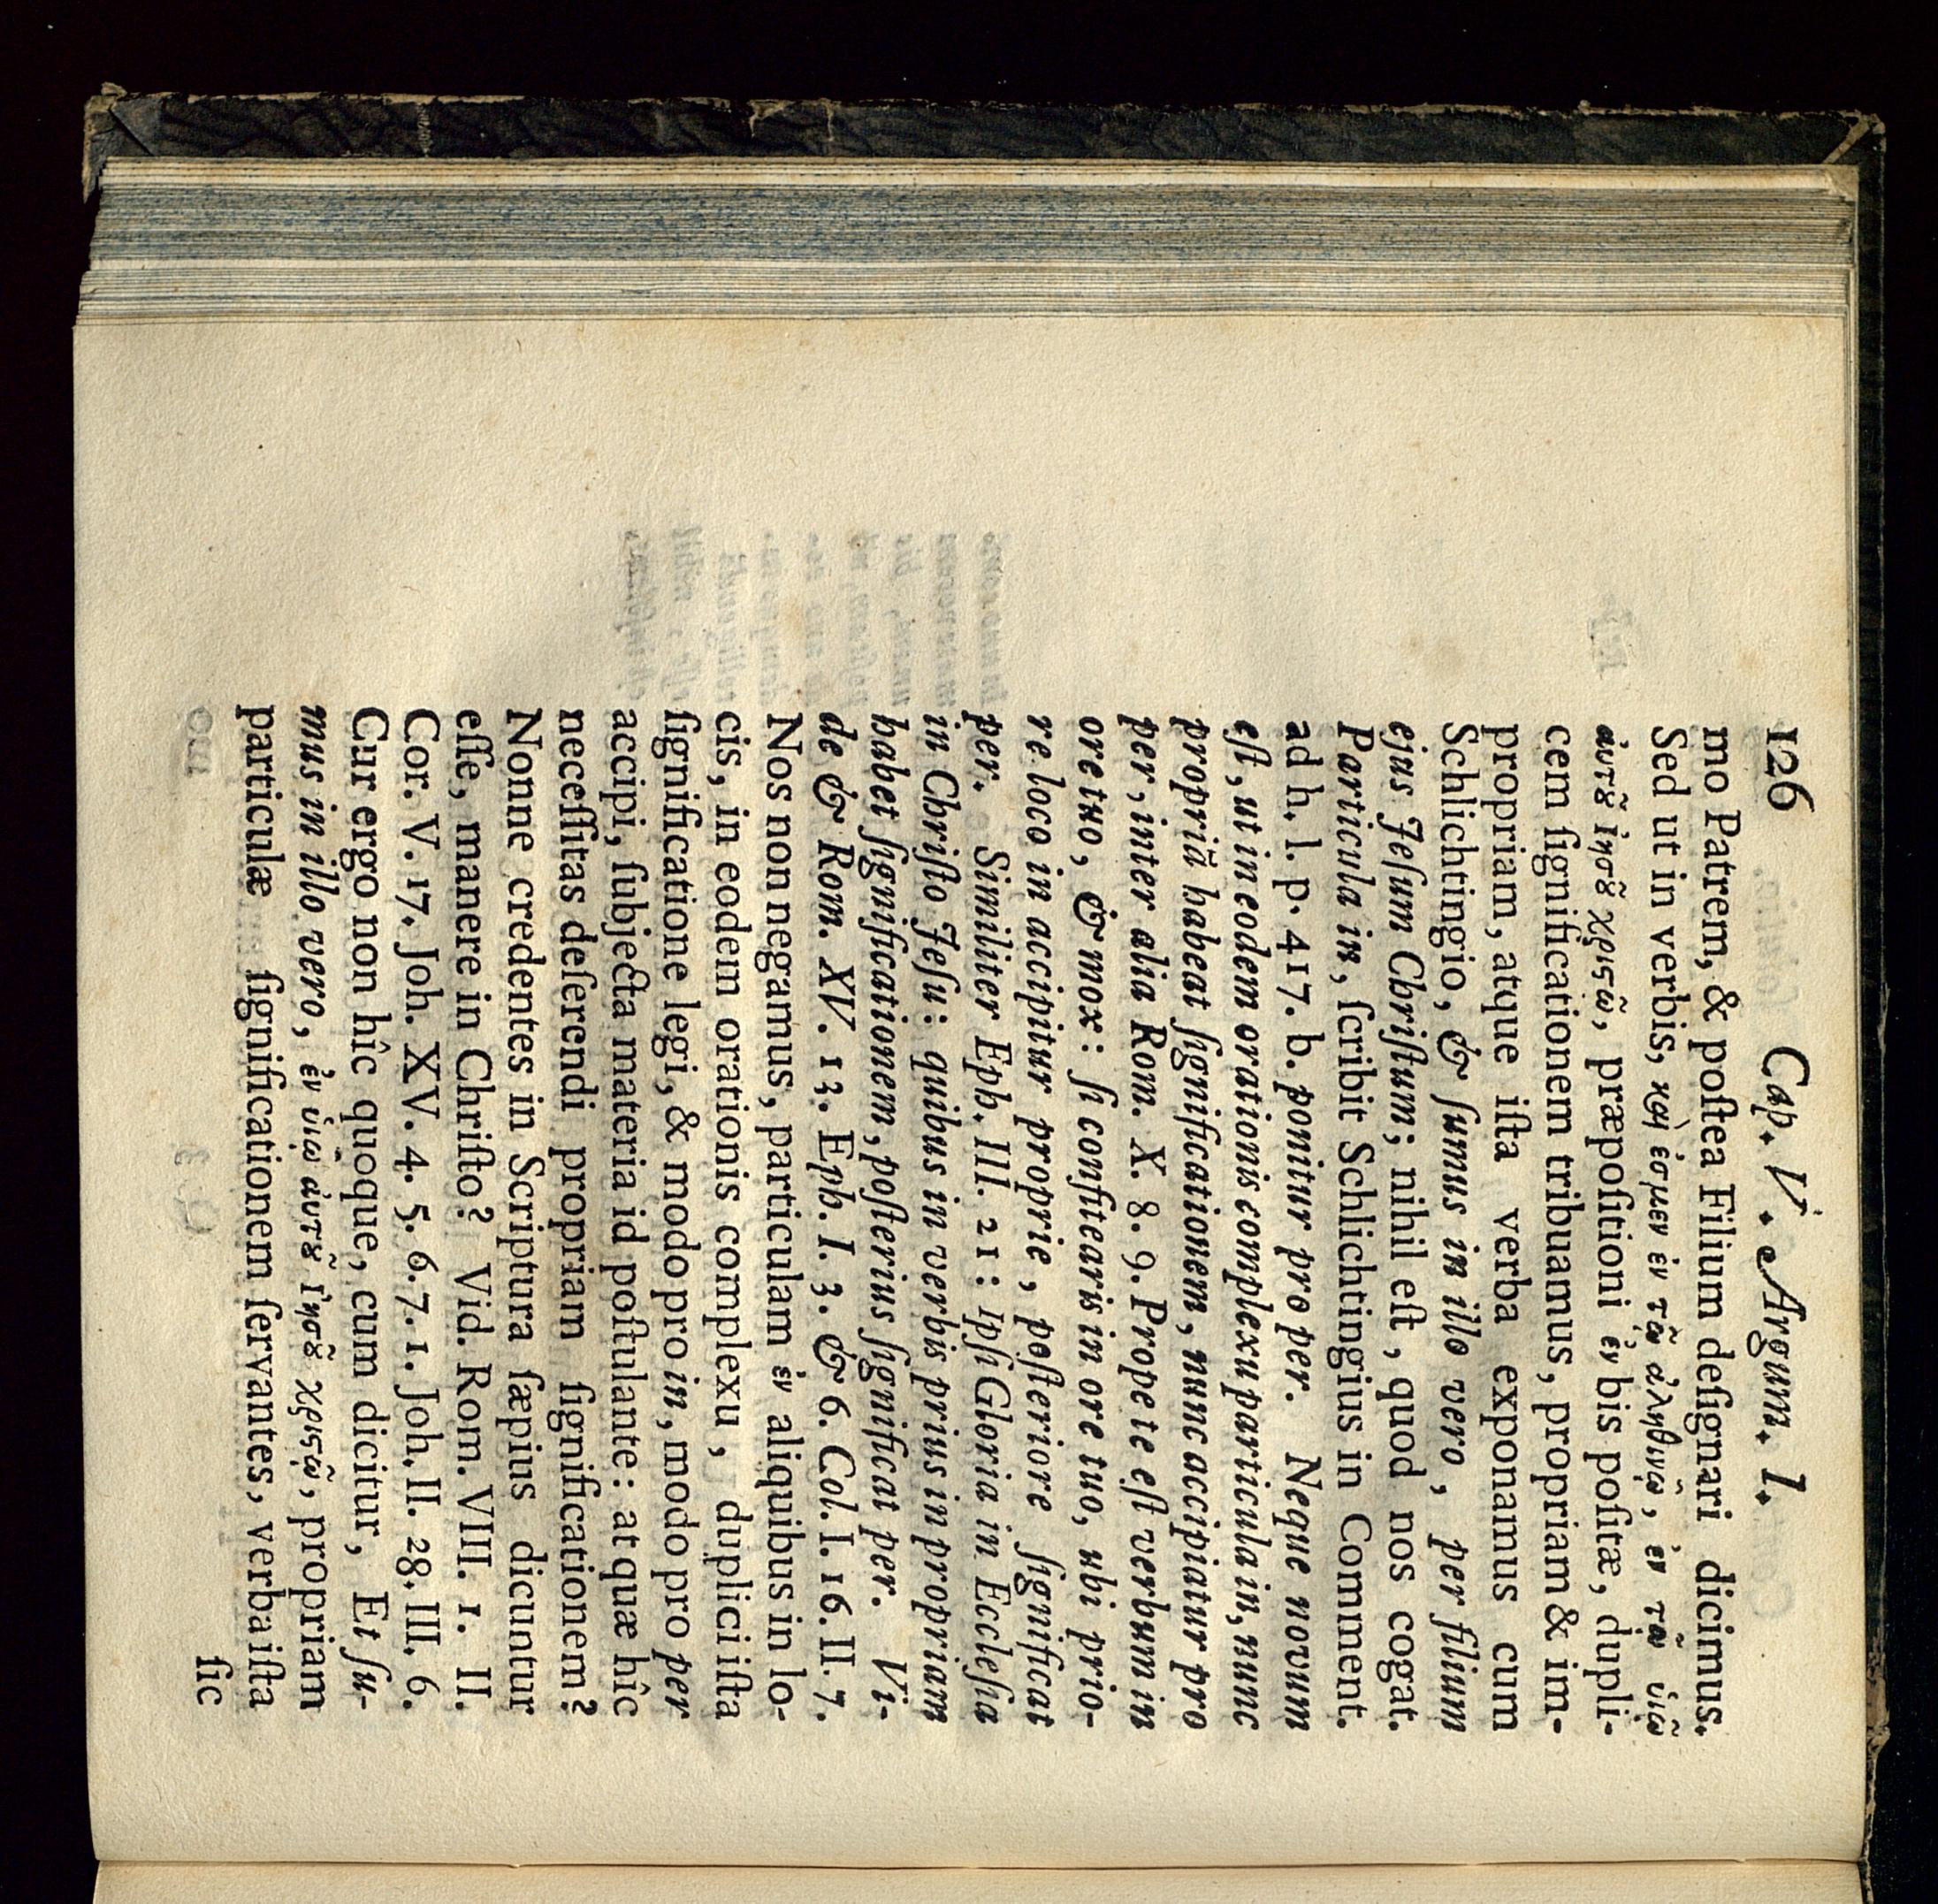 126 Cap. V. Argum. I.
mo Patrem, & poſtea Filium deſignari dicimus.
Sed ut in verbis, καὶ ἐσμεν ἐν τῷ ἀληθινῷ, ἐν τῷ ὑιῷ
ἀυτȣ͂ Ἰησȣ͂ χριϛῷ, præpoſitioni ἐν bis poſitæ, dupli-
cem ſignificationem tribuamus, propriam & im-
propriam, atque iſta verba exponamus cum
Schlichtingio, & ſumus in illo vero, per filium
ejus Jeſum Chriſtum; nihil eſt, quod nos cogat.
Particula in, ſcribit Schlichtingius in Comment.
ad h. l. p. 417. b. ponitur pro per. Neque novum
eſt, ut in eodem orationis complexu particula in, nunc
propriã habeat ſignificationem, nunc accipiatur pro
per, inter alia Rom. X. 8. 9. Prope te eſt verbum in
ore tuo, & mox: ſi confitearis in ore tuo, ubi prio-
re loco in accipitur proprie, poſteriore ſignificat
per. Similiter Eph. III. 21: Ipſi Gloria in Eccleſia
in Chriſto Jeſu: quibus in verbis prius in propriam
habet ſignificationem, poſterius ſignificat per. Vi-
de & Rom. XV. 13. Eph. I. 3. & 6. Col. I. 16. II. 7.
Nos non negramus, particulam ἐν aliquibus in lo-
cis, in eodem orationis complexu, duplici iſta
ſignificatione legi, & modo pro in, modo pro per
accipi, ſubjecta materia id poſtulante: at quæ hîc
neceſſitas deſerendi propriam ſignificationem?
Nonne credentes in Scriptura ſæpius dicuntur
eſſe, manere in Chriſto? Vid. Rom. VIII. 1. II.
Cor. V. 17. Joh. XV. 4. 5. 6. 7. 1. Joh. II. 28. III. 6.
Cur ergo non hîc quoque, cum dicitur, Et ſu-
mus in illo vero, ἐν ὑιῷ ἀυτȣ͂ Ἰησȣ͂ χριϛῷ, propriam
particulæ ſignificationem ſervantes, verba iſta
ſic